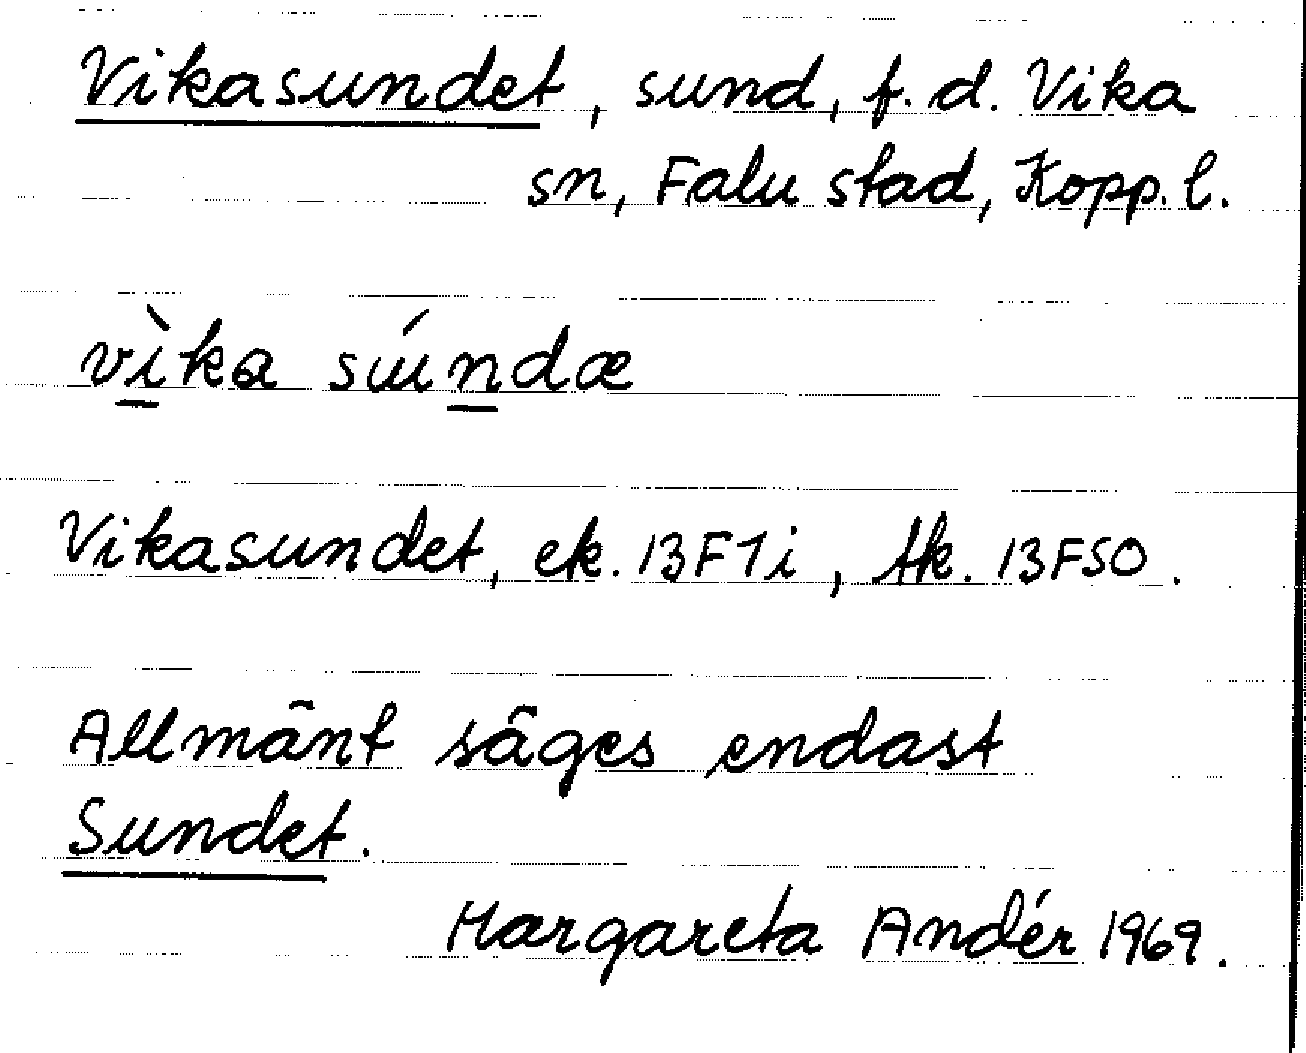 Vikasundet, sund, f.d. Vika
sn, Falu stad, Kopp. l.
vìka súndæ
Vikasundet, ek. 13F1i, tk. 13FSO.
Allmänt säges endast
Sundet.
Margareta Andér 1969.